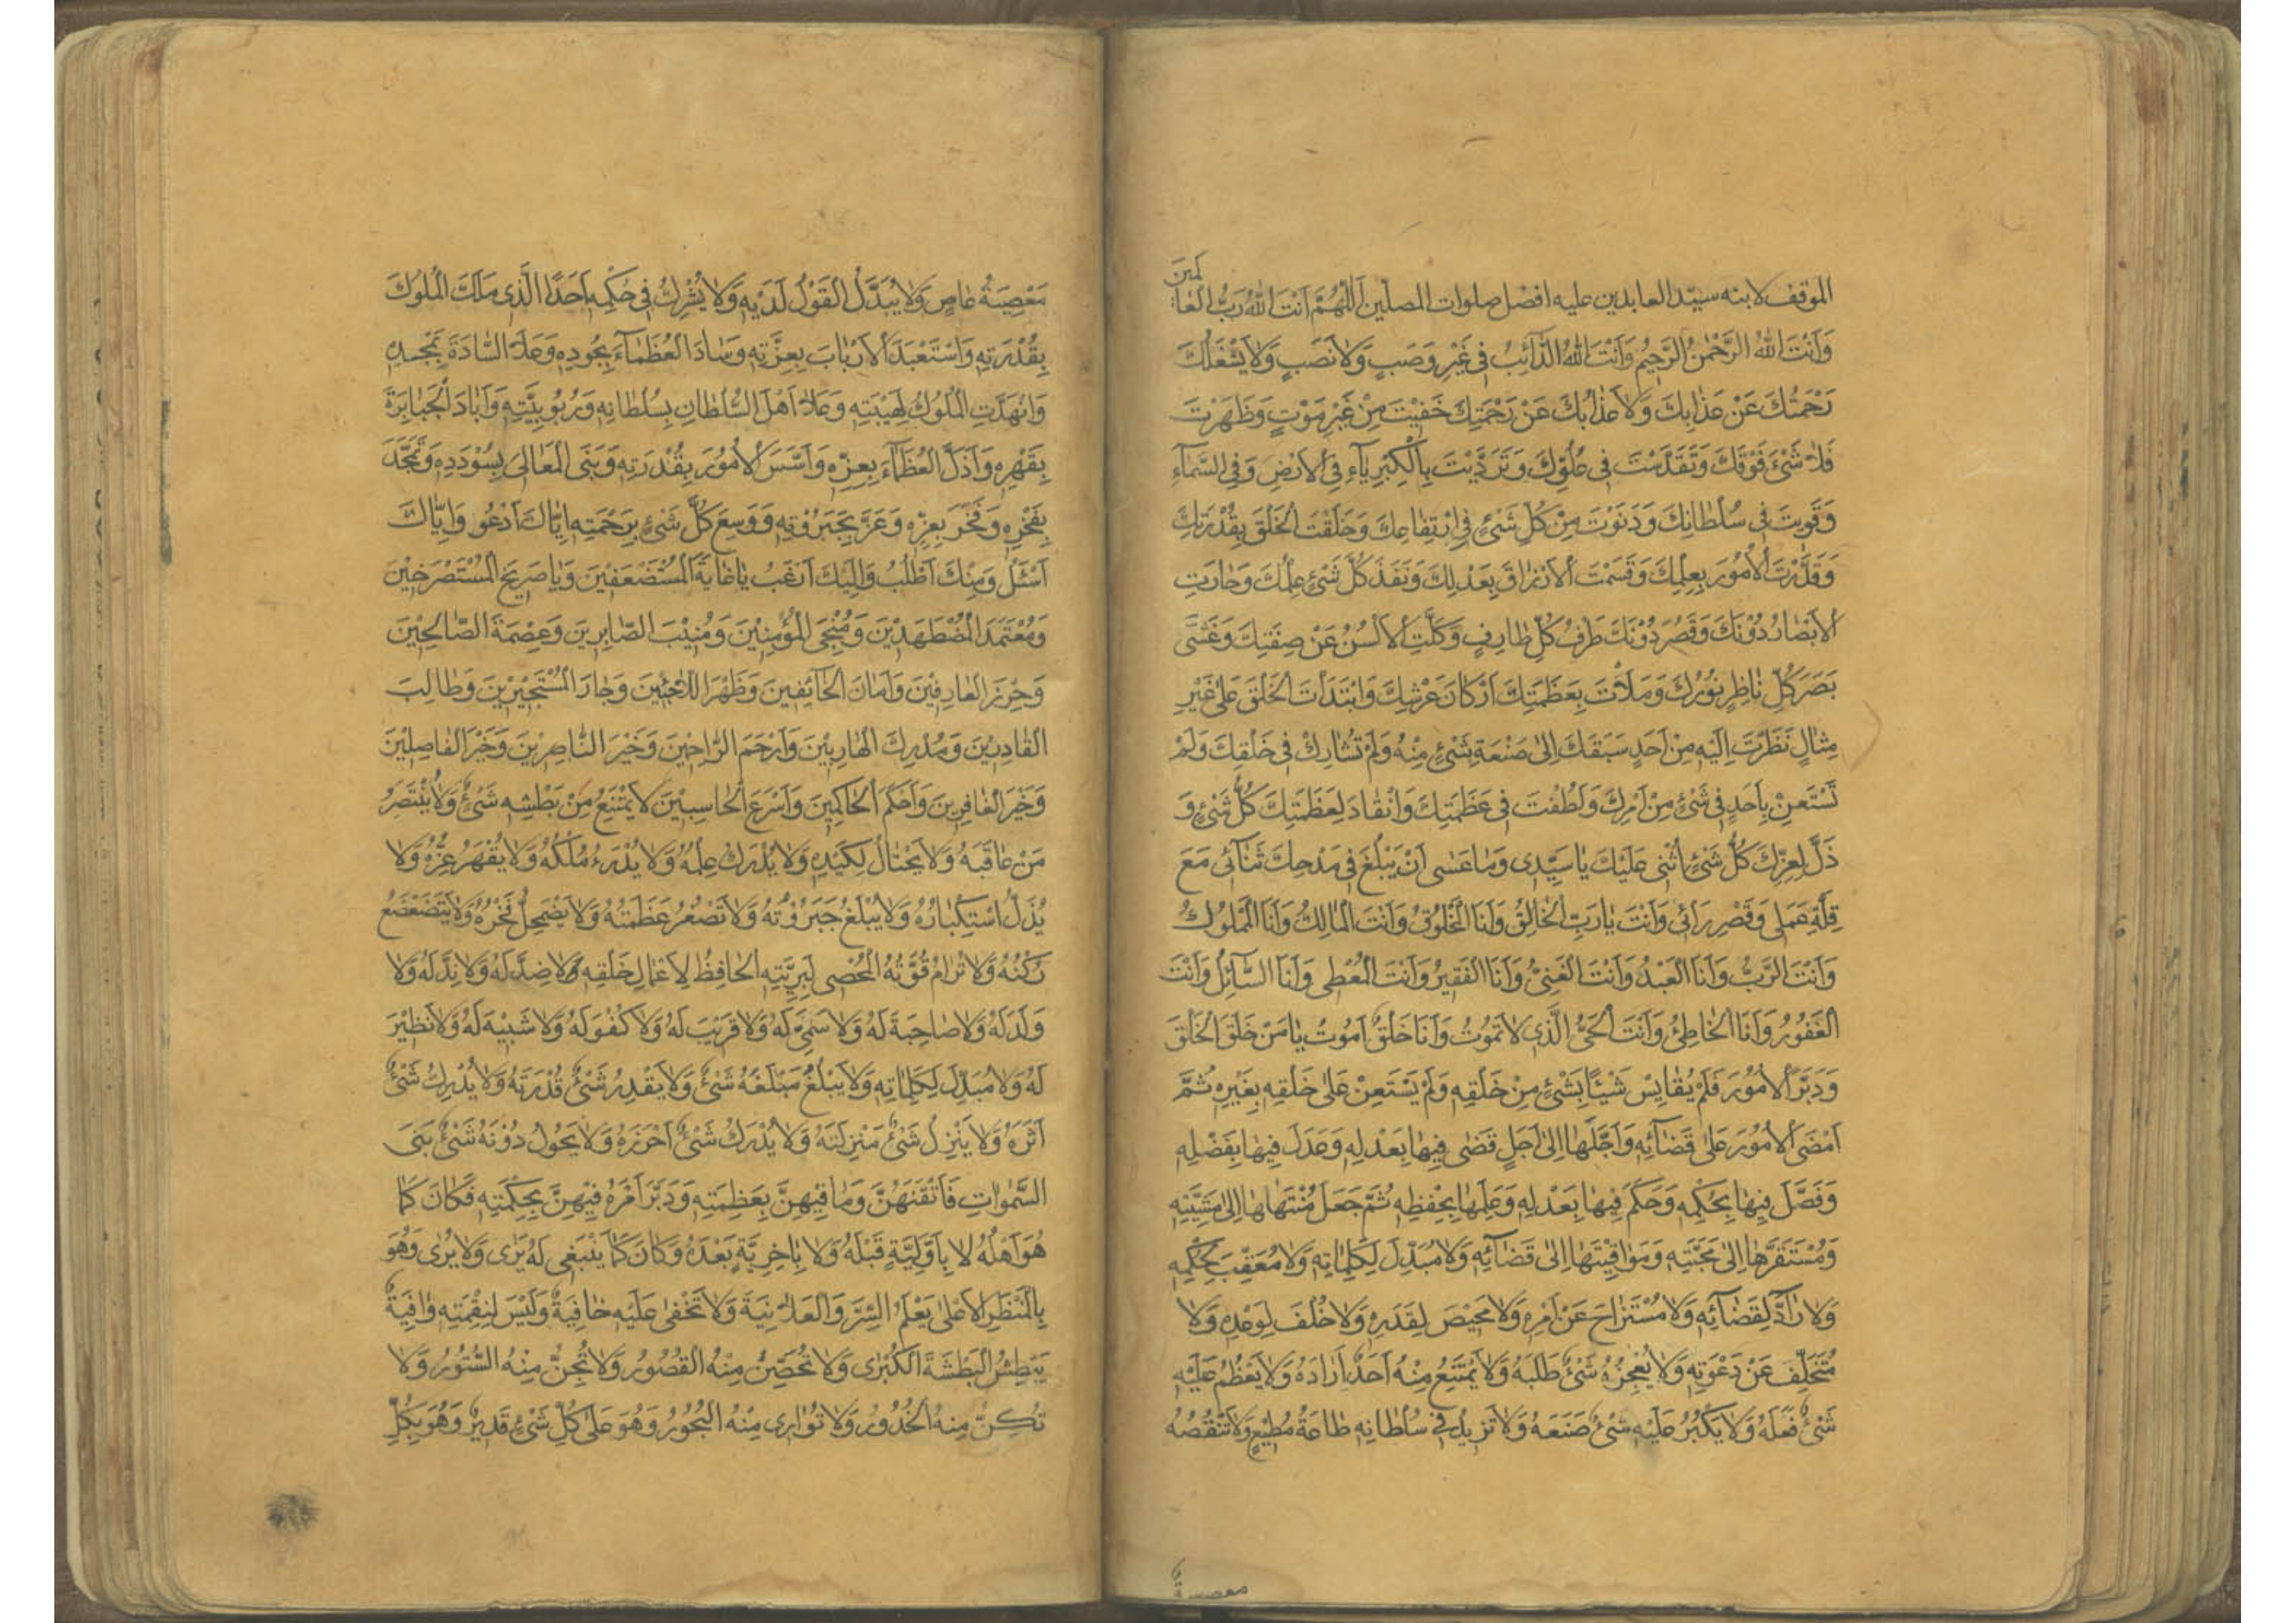 الموقف لابنه سيّد العابدين عليه افضل صلوات المصلّين اَللّٰهُمَّ اَنْتَ اللهُ رَبُّ الْعٰالَمينَ
وَاَنْتَ اللهُ الرَّحْمٰنُ الرَّحيٖمُ وَاَنْتَ اللهُ الدَّآئِبُ فى غَيْرِ وَصَبٍ وَّلاٰ نَصَبٍ وَّلاٰ يَشْغَلُكَ
رَحْمَتُكَ عَنْ عَذٰابِكَ وَلاٰ عَذٰابُكَ عَنْ رَحْمَتِكَ خَفيْتَ مِنْ غَيْرِ مَوْتٍ وَظَهَرْتَ
فَلاٰ شَيْءَ فَوْقَكَ وَتَقَدَّسْتَ فى عُلُوِّكَ وَتَرَدَّيْتَ بِالْكِبْرِيآءِ فِى الْاَرْضِ وَفِى السَّمآءِ
وَقَويتَ فى سُلْطٰانِكَ وَدَنَوْتَ مِنْ كُلِّ شَيْءٍ فِى ارْتِفٰاعِكَ وَخَلَقْتَ الْخَلْقَ بِقُدْرَتِكَ
وَقَدَّرْتَ الْاُمُورَ بِعِلْمِكَ وَقَسَمْتَ الْاَرْزٰاقَ بِعَدْلِكَ وَنَفَذَ كُلَّ شَيْءٍ عِلْمُكَ وَحٰارَتِ
الْاَبْصٰارُ دُوْنَكَ وَقَصُرَ دُوْنَكَ طَرْفُ كُلِّ طٰارِفٍ وَّكَلَّتِ الْاَلْسُنُ عَنْ صِفَتِكَ وَغَشَّى
بَصَرَ كُلِّ نٰاظِرٍ نُوْرُكَ وَمَلَاْتَ بِعَظَمَتِكَ اَرْكٰانَ عَرْشِكَ وَابْتَدَاْتَ الْخَلْقَ عَلىٰ غَيْرِ
مِثٰالٍ نَظَرْتَ اِلَيْهِ مِنْ اَحَدٍ سَبَقَكَ اِلىٰ صَنْعَةِ شَيْءٍ مِنْهُ وَلَمْ تُشٰارَكْ فى خَلْقِكَ وَلَمْ
تَسْتَعِنْ بِاَحَدٍ فى شَيْءٍ مِنْ اَمْرِكَ وَلَطُفْتَ فى عَظَمَتِكَ وَانْقٰادَ لِعَظَمَتِكَ كُلُّ شَيْءٍ وَ
ذَلَّ لِعِزِّكَ كُلُّ شَيْءٍ اُثْنى عَلَيْكَ يٰا سَيِّدى وَمٰا عَسٰى اَنْ يَبْلُغَ فى مَدْحِكَ ثَنٰآئى مَعَ
قِلَّةِ عَمَلى وَقَصْرِ رَائى وَاَنْتَ يٰا رَبِّ الْخٰالِقُ وَاَنَا الْمَخْلُوْقُ وَاَنْتَ الْمٰالِكُ وَاَنَا الْمَمْلُوْكُ
وَاَنْتَ الرَّبُّ وَاَنَا الْعَبْدُ وَاَنْتَ الْغَنِىُّ وَاَنَا الْفَقيرُ وَاَنْتَ الْمُعْطى وَاَنَا السَّآئِلُ وَاَنْتَ
الْغَفُوْرُ وَاَنَا الْخٰاطِئُ وَاَنْتَ الْحَىُّ الَّذى لاٰ تَمُوْتُ وَاَنَا خَلْقٌ اَمُوتُ يٰا مَنْ خَلَقَ الْخَلْقَ
وَدَبَّرَ الْاُمُوْرَ فَلَمْ يُقٰايِسْ شَيْئًا بِشَيْءٍ مِنْ خَلْقِهٖ وَلَمْ يَسْتَعِنْ عَلىٰ خَلْقِهٖ بِغَيْرِهٖ ثُمَّ
اَمْضَى الْاُمُوْرَ عَلىٰ قَضٰآئِهٖ وَاَجَّلَهٰا اِلىٰ اَجَلٍ قَضٰى فيهٰا بِعَدْلِهٖ وَعَدَلَ فيهٰا بِفَضْلِهٖ
وَفَصَّلَ فيهٰا بِحُكْمِهٖ وَحَكَمَ فيهٰا بِعَدْلِهٖ وَعَلِمَهٰا بِحِفْظِهٖ ثُمَّ جَعَلَ مُنْتَهٰاهٰا اِلىٰ مَشِيَّتِهٖ
وَمُسْتَقَرَّهٰا اِلىٰ مَحَبَّتِهٖ وَمَوٰاقِيْتَهٰا اِلىٰ قَضٰآئِهٖ وَلاٰ مُبَدِّلَ لِكَلِمٰاتِهٖ وَلاٰ مُعَقِّبَ لِحُكْمِهٖ
وَلاٰ رٰآدَّ لِقَضٰآئِهٖ وَلاٰ مُسْتَزٰاحَ عَنْ اَمْرِهٖ وَلاٰ مَحيْصَ لِقَدَرِهٖ وَلاٰ خُلْفَ لِوَعْدِهٖ وَلاٰ
مُتَخَلِّفَ عَنْ دَعْوَتِهٖ وَلاٰ يُعْجِزُهُ شَيْءٌ طَلَبَهُ وَلاٰ يَمْتَنِعُ مِنْهُ اَحَدٌ اَرٰادَهُ وَلاٰ يَعْظُمُ عَلَيْهِ
شَيْءٌ فَعَلَهُ وَلاٰ يَكْبُرُ عَلَيْهِ شَيْءٌ صَنَعَهُ وَلاٰ تَزيدُ فى سُلْطٰانِهٖ طٰاعَةُ مُطيعٍ وَّلاٰ تَنْقُصُهُ
معصيةُ
مَعْصِيَةُ عٰاصٍ وَّلاٰ يُبَدَّلُ الْقَوْلُ لَدَيْهِ وَلاٰ يُشْرِكُ فى حُكْمِهٖ اَحَدًا الَّذى مَلَكَ الْمُلُوْكَ
بِقُدْرَتِهٖ وَاسْتَعْبَدَ الْاَرْبٰابَ بِعِزَّتِهٖ وَسٰادَ الْعُظَمٰآءَ بِجُودِهٖ وَعَلاَ السّٰادَةَ بِمَجْدِهٖ
وَانْهَدَّتِ الْمُلُوْكُ لِهَيْبَتِهٖ وَعَلاٰ اَهْلَ السُّلْطٰانِ بِسُلْطٰانِهٖ وَرُبُوْبِيَّتِهٖ وَاَبٰادَ الْجَبٰابِرَةَ
بِقَهْرِهٖ وَاَذَلَّ الْعُظَمٰآءَ بِعِزِّهٖ وَاَسَّسَ الْاُمُوْرَ بِقُدْرَتِهٖ وَبَنَى الْمَعٰالِىَ بِسُوْدَدِهٖ وَتَمَجَّدَ
بِفَخْرِهٖ وَفَخَرَ بِعِزِّهٖ وَعَزَّ بِجَبَرُوْتِهٖ وَوَسِعَ كُلَّ شَيْءٍ بِرَحْمَتِهٖ اِيّٰاكَ اَدْعُو وَاِيّٰاكَ
اَسْئَلُ وَمِنْكَ اَطْلُبُ وَاِلَيْكَ اَرْغَبُ يٰا غٰايَةَ الْمُسْتَضْعَفِيْنَ وَيٰا صَريخَ الْمُسْتَصْرِخيْنَ
وَمُعْتَمَدَ الْمُضْطَهَدِيْنَ وَمُنْجِىَ الْمُؤْمِنِيْنَ وَمُثِيْبَ الصّٰابِرينَ وَعِصْمَةَ الصّٰالِحِيْنَ
وَحِرْزَ الْعٰارِفِيْنَ وَاَمٰانَ الْخٰآئِفينَ وَظَهْرَ اللّٰاجِئِيْنَ وَجٰارَ الْمُسْتَجِيْرِيْنَ وَطٰالِبَ
الْغٰادِرِيْنَ وَمُدْرِكَ الْهٰارِبِيْنَ وَاَرْحَمَ الرّٰاحِمِيْنَ وَخَيْرَ النّٰاصِرِيْنَ وَخَيْرَ الْفٰاصِلِيْنَ
وَخَيْرَ الْغٰافِرينَ وَاَحْكَمَ الْحٰاكِمِيْنَ وَاَسْرَعَ الْحٰاسِبِيْنَ لاٰ يَمْتَنِعُ مِنْ بَطْشِهٖ شَيْءٌ وَّلاٰ يَنْتَصِرُ
مَنْ عٰاقَبَهُ وَلاٰ يَحْتٰالُ لِكَيْدِهٖ وَلاٰ يُدْرَكُ عِلْمُهُ وَلاٰ يُدْرَءُ مُلْكُهُ وَلاٰ يُقْهَرُ عِزُّهُ وَلاٰ
يُذَلُّ اسْتِكْبٰارُهُ وَلاٰ يُبْلَغُ جَبَرُوْتُهُ وَلاٰ تَصْغُرُ عَظَمَتُهُ وَلاٰ يَضْمَحِلُّ فَخْرُهُ وَلاٰ يَتَضَعْضَعُ
رُكْنُهُ وَلاٰ تُرٰامُ قُوَّتُهُ الْمُحْصى لِبَرِيَّتِهِ الْحٰافِظُ لِاَعْمٰالِ خَلْقِهٖ لاٰ ضِدَّ لَهُ وَلاٰ نِدَّ لَهُ وَلاٰ
وَلَدَ لَهُ وَلاٰ صٰاحِبَةَ لَهُ وَلاٰ سَمِىَّ لَهُ وَلاٰ قَريْبَ لَهُ وَلاٰ كُفْوَ لَهُ وَلاٰ شَبِيْهَ لَهُ وَلاٰ نَظِيْرَ
لَهُ وَلاٰ مُبَدِّلَ لِكَلِمٰاتِهٖ وَلاٰ يَبْلُغُ مَبْلَغَهُ شَيْءٌ وَّلاٰ يَقْدِرُ شَيْءٌ قُدْرَتَهُ وَلاٰ يُدْرِكُ شَيْءٌ
اَثَرَهُ وَلاٰ يَنْزِلُ شَيْءٌ مَنْزِلَتَهُ وَلاٰ يُدْرَكُ شَيْءٌ اَحْرَزَهُ وَلاٰ يَحُولُ دُوْنَهُ شَيْءٌ بَنَى
السَّمٰوٰاتِ فَاَتْقَنَهُنَّ وَمٰا فِيْهِنَّ بِعَظَمَتِهٖ وَدَبَّرَ اَمْرَهُ فِيْهِنَّ بِحِكْمَتِهٖ فَكٰانَ كَمٰا
هُوَ اَهْلُهُ لاٰ بِاَوَّلِيَّةٍ قَبْلَهُ وَلاٰ بِاٰخِرِيَّةٍ بَعْدَهُ وَكٰانَ كَمٰا يَنْبَغى لَهُ يَرٰى وَلاٰ يُرٰى وَهُوَ
بِالْمَنْظَرِ الْاَعْلىٰ يَعْلَمُ السِّرَّ وَالْعَلاٰنِيَةَ وَلاٰ تَخْفىٰ عَلَيْهِ خٰافِيَةٌ وَلَيْسَ لِنِقْمَتِهٖ وٰاقِيَةٌ
يَبْطِشُ الْبَطْشَةَ الْكُبْرٰى وَلاٰ تُحَصِّنُ مِنْهُ الْقُصُوْرُ وَلاٰ تُجِنُّ مِنْهُ السُّتُوْرُ وَلاٰ
تُكِنُّ مِنْهُ الْخُدُوْرُ وَلاٰ تُوٰارى مِنْهُ الْبُحُوْرُ وَهُوَ عَلىٰ كُلِّ شَيْءٍ قَديْرٌ وَهُوَ بِكُلِّ